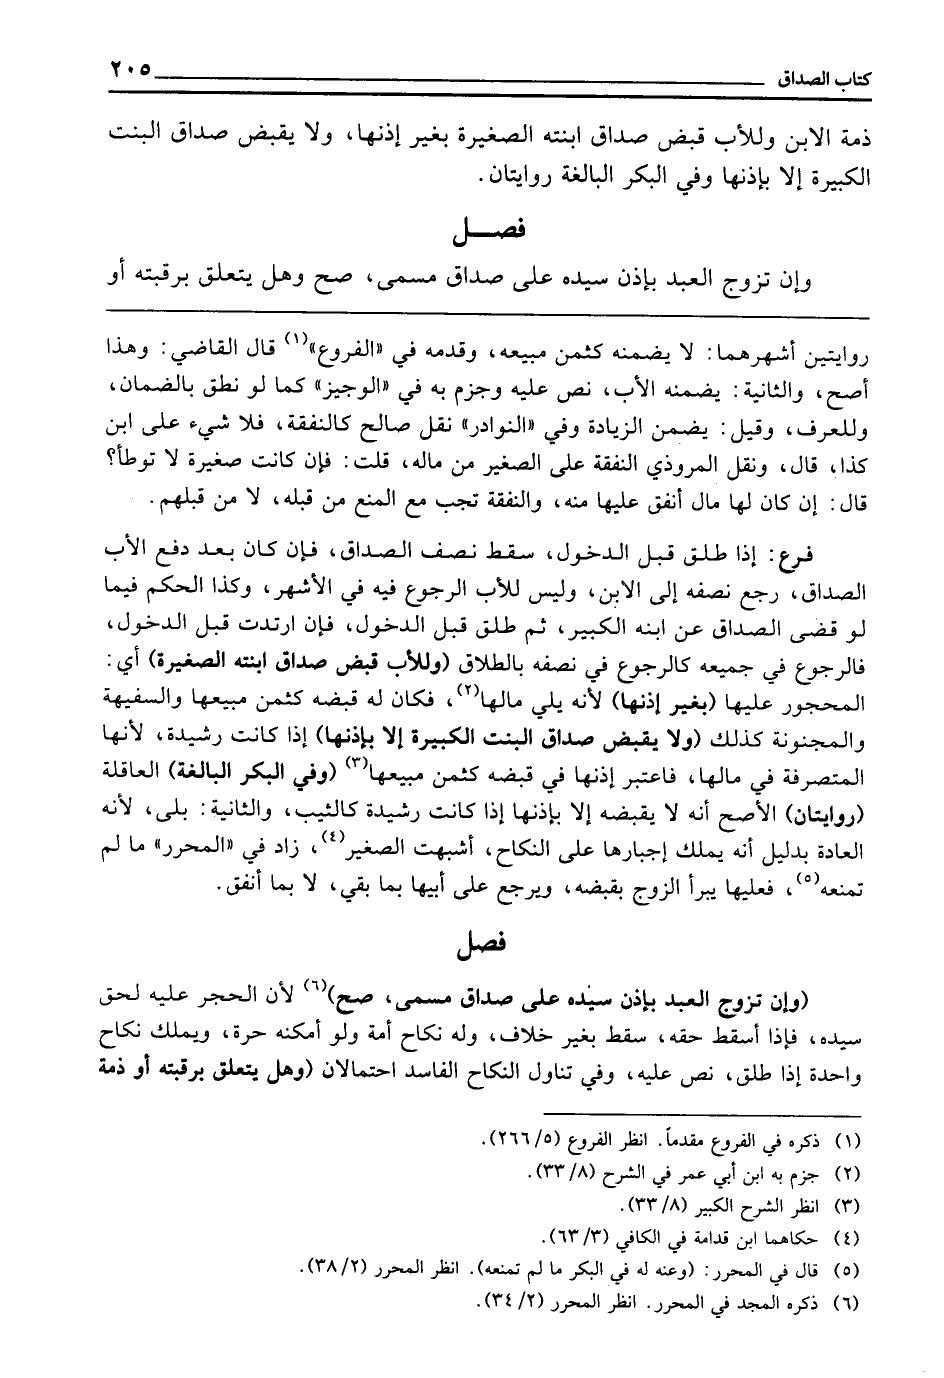 كتاب الصداق ٢٠٥
ذمة الابن وللأب قبض صداق ابنته الصغيرة بغير إذنها، ولا يقبض صداق البنت
الكبيرة إلا بإذنها وفي البكر البالغة روايتان.
فصـــل
وإن تزوج العبد بإذن سيده على صداق مسمى، صح وهل يتعلق برقبته أو
روايتين أشهرهما: لا يضمنه كثمن مبيعه، وقدمه في «الفروع»(١) قال القاضي: وهذا
أصح، والثانية: يضمنه الأب، نص عليه وجزم به في «الوجيز» كما لو نطق بالضمان،
وللعرف، وقيل: يضمن الزيادة وفي «النوادر» نقل صالح كالنفقة، فلا شيء على ابن
كذا، قال، ونقل المروذي النفقة على الصغير من ماله، قلت: فإن كانت صغيرة لا توطأ؟
قال: إن كان لها مال أنفق عليها منه، والنفقة تجب مع المنع من قبله، لا من قبلهم.
فرع: إذا طلق قبل الدخول، سقط نصف الصداق، فإن كان بعد دفع الأب
الصداق، رجع نصفه إلى الابن، وليس للأب الرجوع فيه في الأشهر، وكذا الحكم فيما
لو قضى الصداق عن ابنه الكبير، ثم طلق قبل الدخول، فإن ارتدت قبل الدخول،
فالرجوع في جميعه كالرجوع في نصفه بالطلاق (وللأب قبض صداق ابنته الصغيرة) أي:
المحجور عليها (بغير إذنها) لأنه يلي مالها(٢)، فكان له قبضه كثمن مبيعها والسفيهة
والمجنونة كذلك (ولا يقبض صداق البنت الكبيرة إلا بإذنها) إذا كانت رشيدة، لأنها
المتصرفة في مالها، فاعتبر إذنها في قبضه كثمن مبيعها(٣) (وفي البكر البالغة) العاقلة
(روايتان) الأصح أنه لا يقبضه إلا بإذنها إذا كانت رشيدة كالثيب، والثانية: بلى، لأنه
العادة بدليل أنه يملك إجبارها على النكاح، أشبهت الصغير(٤)، زاد في «المحرر» ما لم
تمنعه(٥)، فعليها يبرأ الزوج بقبضه، ويرجع على أبيها بما بقي، لا بما أنفق.
فصل
(وإن تزوج العبد بإذن سيده على صداق مسمى، صح)(٦) لأن الحجر عليه لحق
سيده، فإذا أسقط حقه، سقط بغير خلاف، وله نكاح أمة ولو أمكنه حرة، ويملك نكاح
واحدة إذا طلق، نص عليه، وفي تناول النكاح الفاسد احتمالان (وهل يتعلق برقبته أو ذمة
(١) ذكره في الفروع مقدماً. انظر الفروع (٢٦٦/٥).
(٢) جزم به ابن أبي عمر في الشرح (٣٣/٨).
(٣) انظر الشرح الكبير (٣٣/٨).
(٤) حكاهما ابن قدامة في الكافي (٦٣/٣).
(٥) قال في المحرر: (وعنه له في البكر ما لم تمنعه). انظر المحرر (٣٨/٢).
(٦) ذكره المجد في المحرر. انظر المحرر (٣٤/٢).